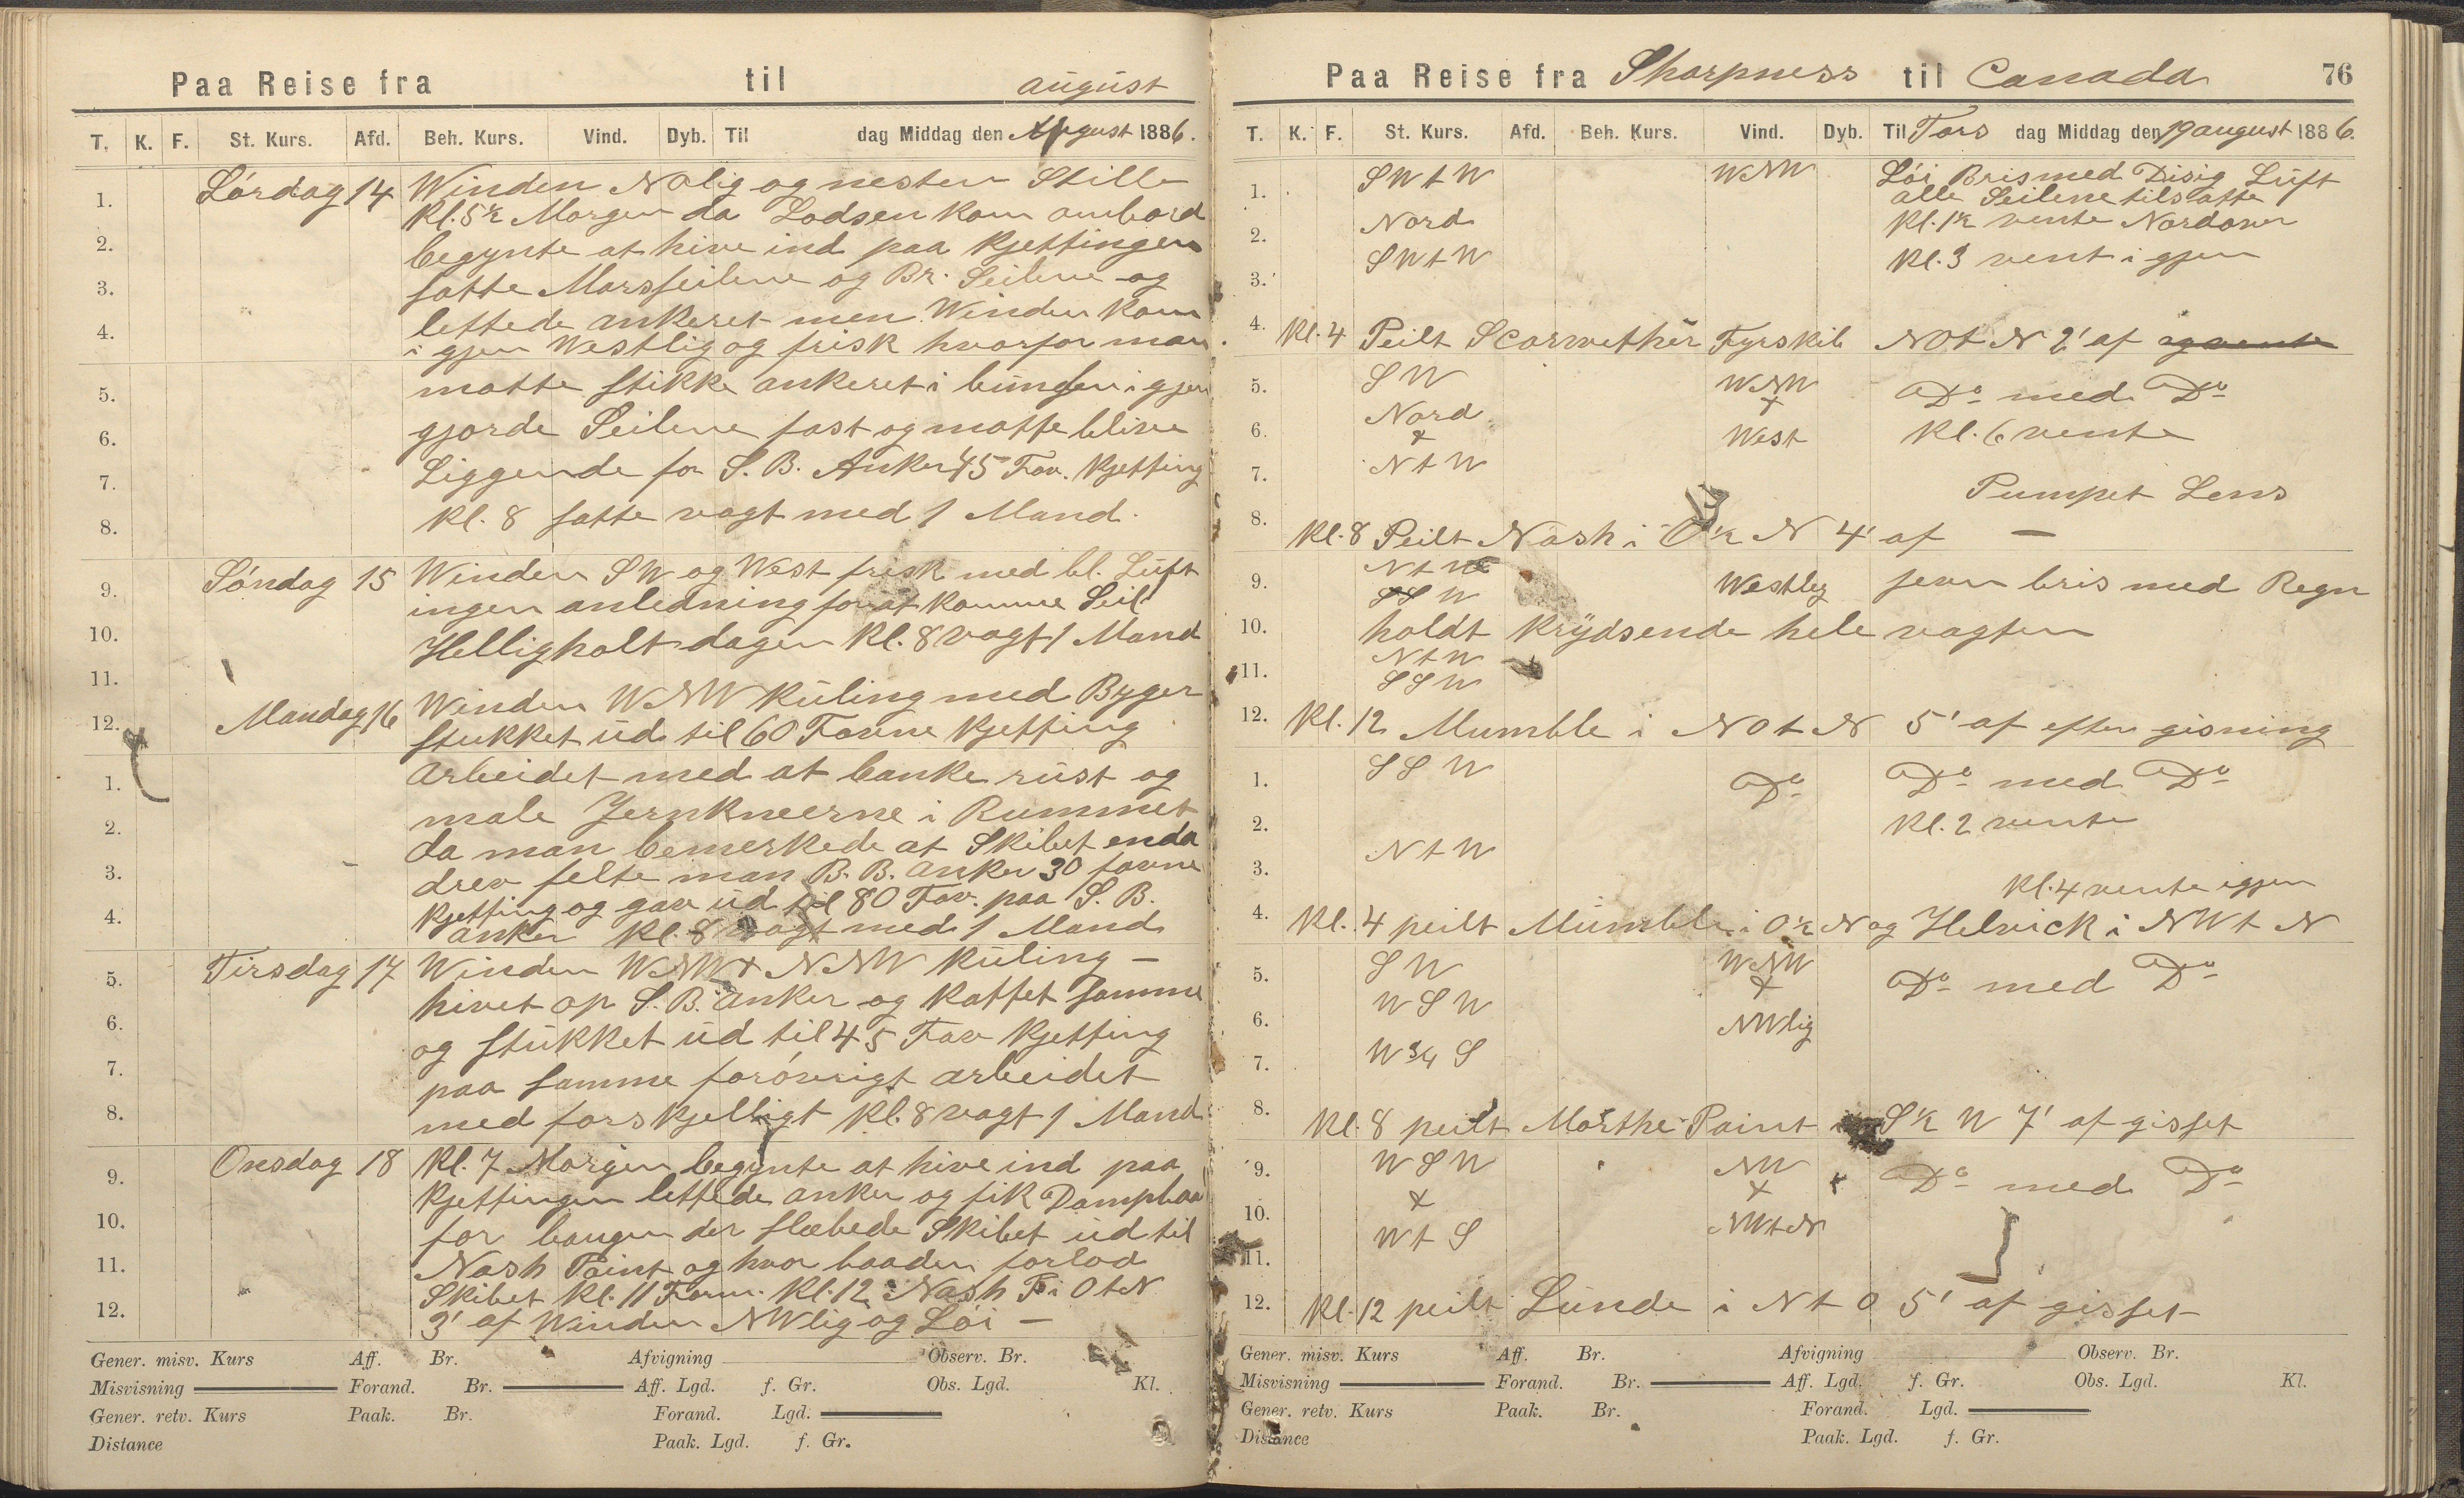 Paa Reise fra til august
T. K. F. St. Kurs. Afd. Beh. Kurs. Vind. Dyb. Til dag Middag den August 1886.
Lördag 14 Winden Nolig og nesten Stille
1.
Kl. 5½ Morgen da Lodsen kom ombord
2. begynte at hive ind paa Kjettingen
3. satte Mersseilene og Br. Seilene og
lettede ankeret men Winden kom
4. i gjen Westlig og frisk hvorfor man
5. motte stikke ankeret i bunden i gjen
6. gjorde Seilene fast og motte blive
7. Liggende for S. B. Anker 45 Fav. Kjetting
8. Kl. 8 satte vagt med 1 Mand.
9. Söndag 15 Winden SW og West frisk med bl. Luft
ingen anledning for at komme Seil
10. Helligholt dagen Kl. 8 vagt 1 Mand
11.
12. Mandag 16 Winden WNW Kuling med Byger
stukket ud til 60 Favne Kjetting
1. Arbeidet med at banke rust og
2. male Jernkneerne i Rummet
da man bemerkede at Skibet enda
3. drev felte man B. B. Anker 30 favne
Kjetting og gav ud til 80 Fav. paa S. B.
4. anker Kl. 8 vagt med 1 Mand
5. Tirsdag 17 Winden WNW + NNW Kuling —
hivet op S. B. Anker og kattet samme
6. og stukket ud til 45 Fav Kjetting
7. paa samme foröverigt arbeidet
8. med forskjelligt Kl. 8 vagt 1 Mand
9. Onsdag 18 Kl. 7 Morgen begynte at hive ind paa
Kjettingen lettede anker og fik Dampbaa
10. for bougen der slæbede Skibet ud til
11. Nash Point og hvor baaden forlod
Skibet Kl. 11 Form. Kl. 12 Nash P. i O t N
12. 3' af Winden NWlig og Löi —
Gener. misv. Kurs Aff. Br. Afvigning Observ. Br.
Misvisning Forand. Br. Aff. Lgd. f. Gr. Obs. Lgd. Kl.
Gener. retv. Kurs Paak. Br. Forand. Lgd.
Distance Paak. Lgd. f. Gr.
Paa Reise fra Sharpness til Canada 76
T. K. F. St. Kurs. Afd. Beh. Kurs. Vind. Dyb. Til Tors dag Middag den 19 august 1886.
1. SW t W WNW Löi Bris med Disig Luft
alle Seilene tilsatte
2. Nord Kl. 1½ vente Nordover
3. SW t W Kl. 3 vent i gjen
4. Kl. 4 Peilt Scarwether Fyrskib NO t N 2' af og vente
5. SW WNW Do med Do
+
6. Nord West Kl. 6 vente
+
7. N t W
Pumpet Lens
8. Kl. 8 Peilt Nash i O ½ N 4' af —
9. N t W Westlig jevn bris med Regn
SSW
10. holdt Krydsende hele vagten
N t W
11. SSW
12. Kl. 12 Mumble i NO t N 5' af efter gisning
1. SSW Do Do med Do
2. Kl. 2 vente
3. N t W
Kl. 4 vente igjen
4. Kl. 4 peilt Mumble i O ½ N og Helvick i NW t N
5. SW WNW Do med Do
+
6. WSW NWlig
7. W ¾ S
8. Kl. 8 peilt Morthe Point i S ½ W 7' af gisset
9. WSW NW Do med Do
+ +
10. W t S NW t N
11.
12. Kl. 12 peilt Lunde i N t O 5' af gisset
Gener. misv. Kurs Aff. Br. Afvigning Observ. Br.
Misvisning Forand. Br. Aff. Lgd. f. Gr. Obs. Lgd. Kl.
Gener. retv. Kurs Paak. Br. Forand. Lgd.
Distance Paak. Lgd. f. Gr.